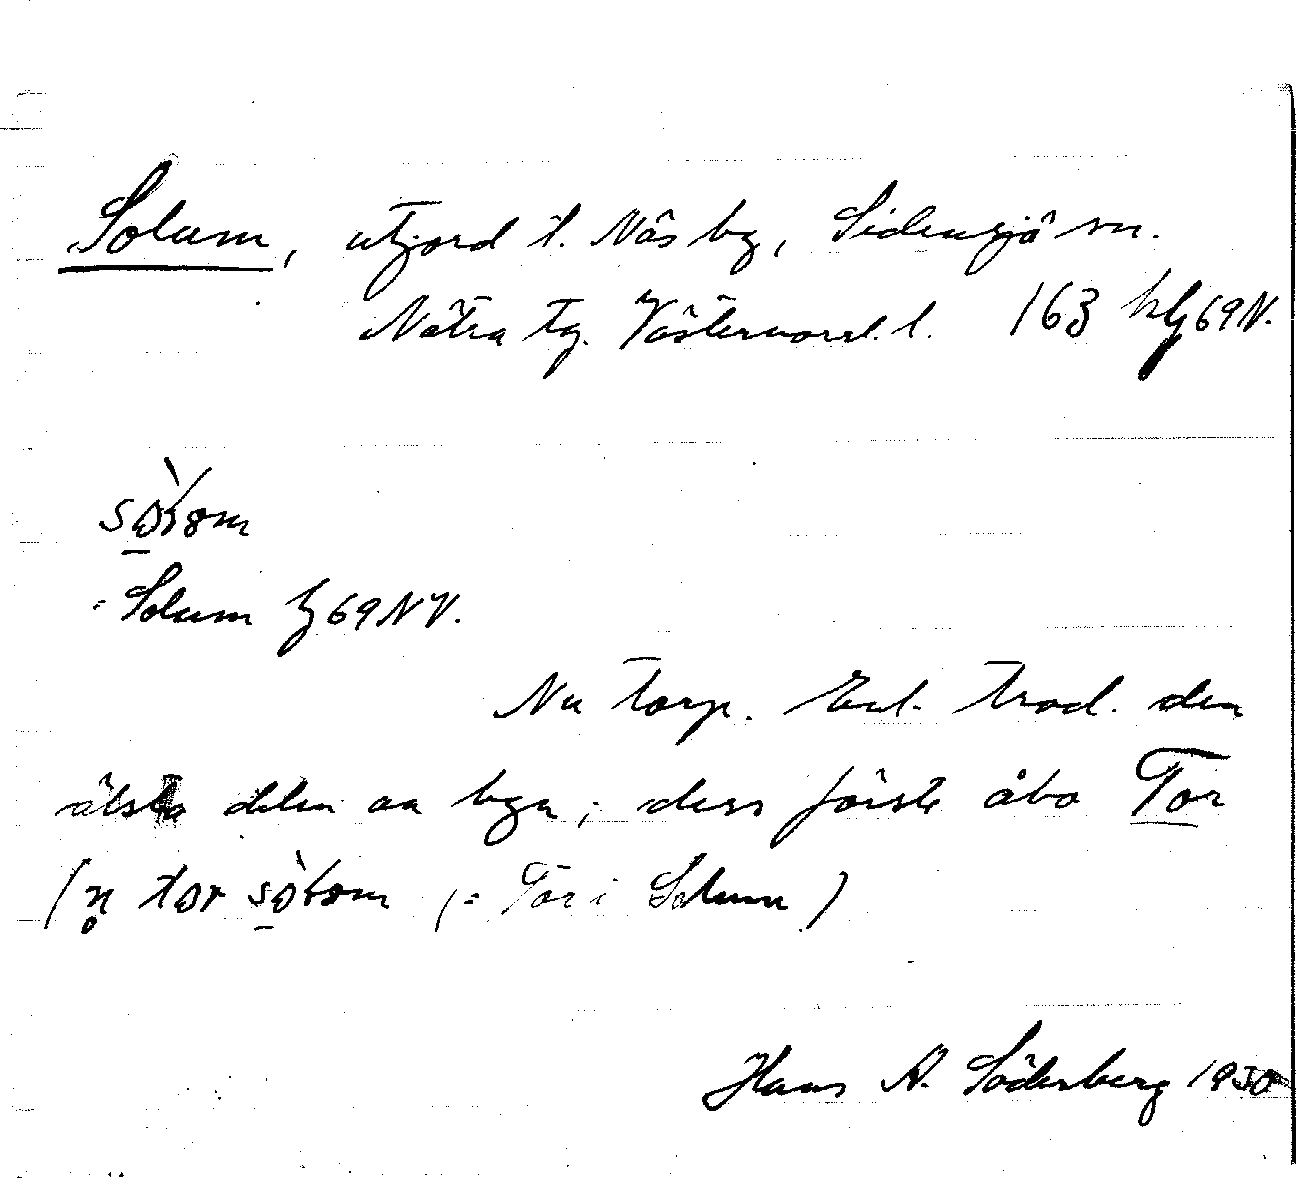 Solum, utjord t. Näs by, Sidensjö sn.
Nätra tg. Västernorrl. l. 163 hbl 69N.
Solum bl 69NV.
Nu torp. Enl. trad. den
älsta delen av byn; dess förste åbo Tor
(n tor (= Tor i Solum)
Hans A. Söderberg 1930